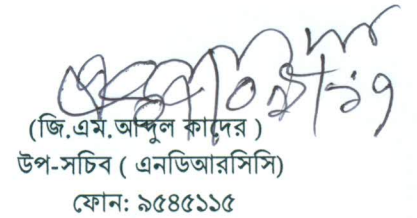 (জি.এম.আব্দুল কাদের )
উপ-সচিব ( এনডিআরসিসি)
ফোন: ৯৫৪৫১১৫